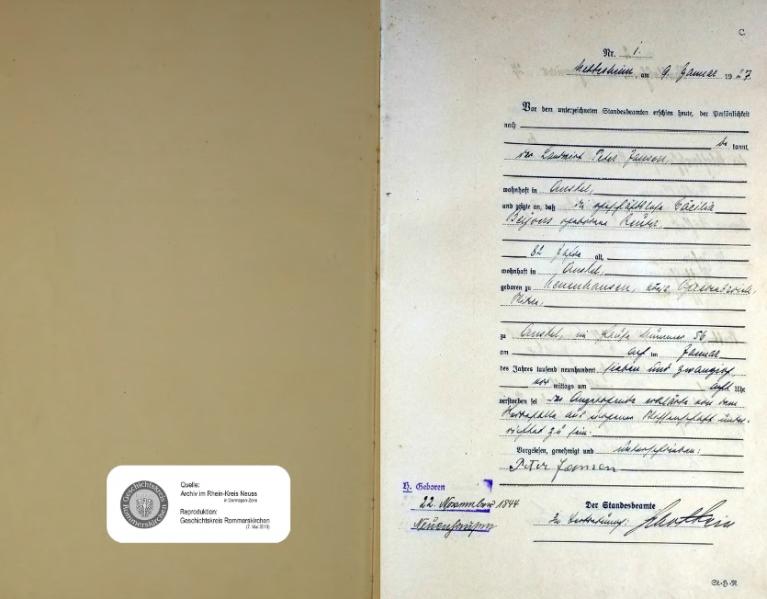 Quelle:
Archiv im Rhein-Kreis Neuss
in Dormagen-Zons
Reproduktion:
Geschichtskreis Rommerskirchen
Geschichtskreis Rommerskirchen
C
Nr. 1.
am 9. Januar 1927
Vor dem unterzeichneten Standesbeamten erschien heute, der Persönlichkeit
nach
be kannt,
der Landwirt Peter Jansen
wohnhaft in Anstel,
und zeigte an, daß die Cäcilia
geborene
82 Jahre alt,
wohnhaft in Anstel,
geboren zu Neuenhausen,
zu Anstel, im Hause Nummer 56
am acht ten Januar
des Jahres tausend neunhundert sieben und zwanzig,
vor mittags um acht Uhr
verstorben sei. der Anzeigende erklärte von dem
Sterbefalle aus eigener Wissenschaft unter-
richtet zu sein.
Vorgelesen, genehmigt und unterschrieben:
Peter Jansen
H. Geboren
22. November 1844
Der Standesbeamte
In Vertretung:
St.-H.-R